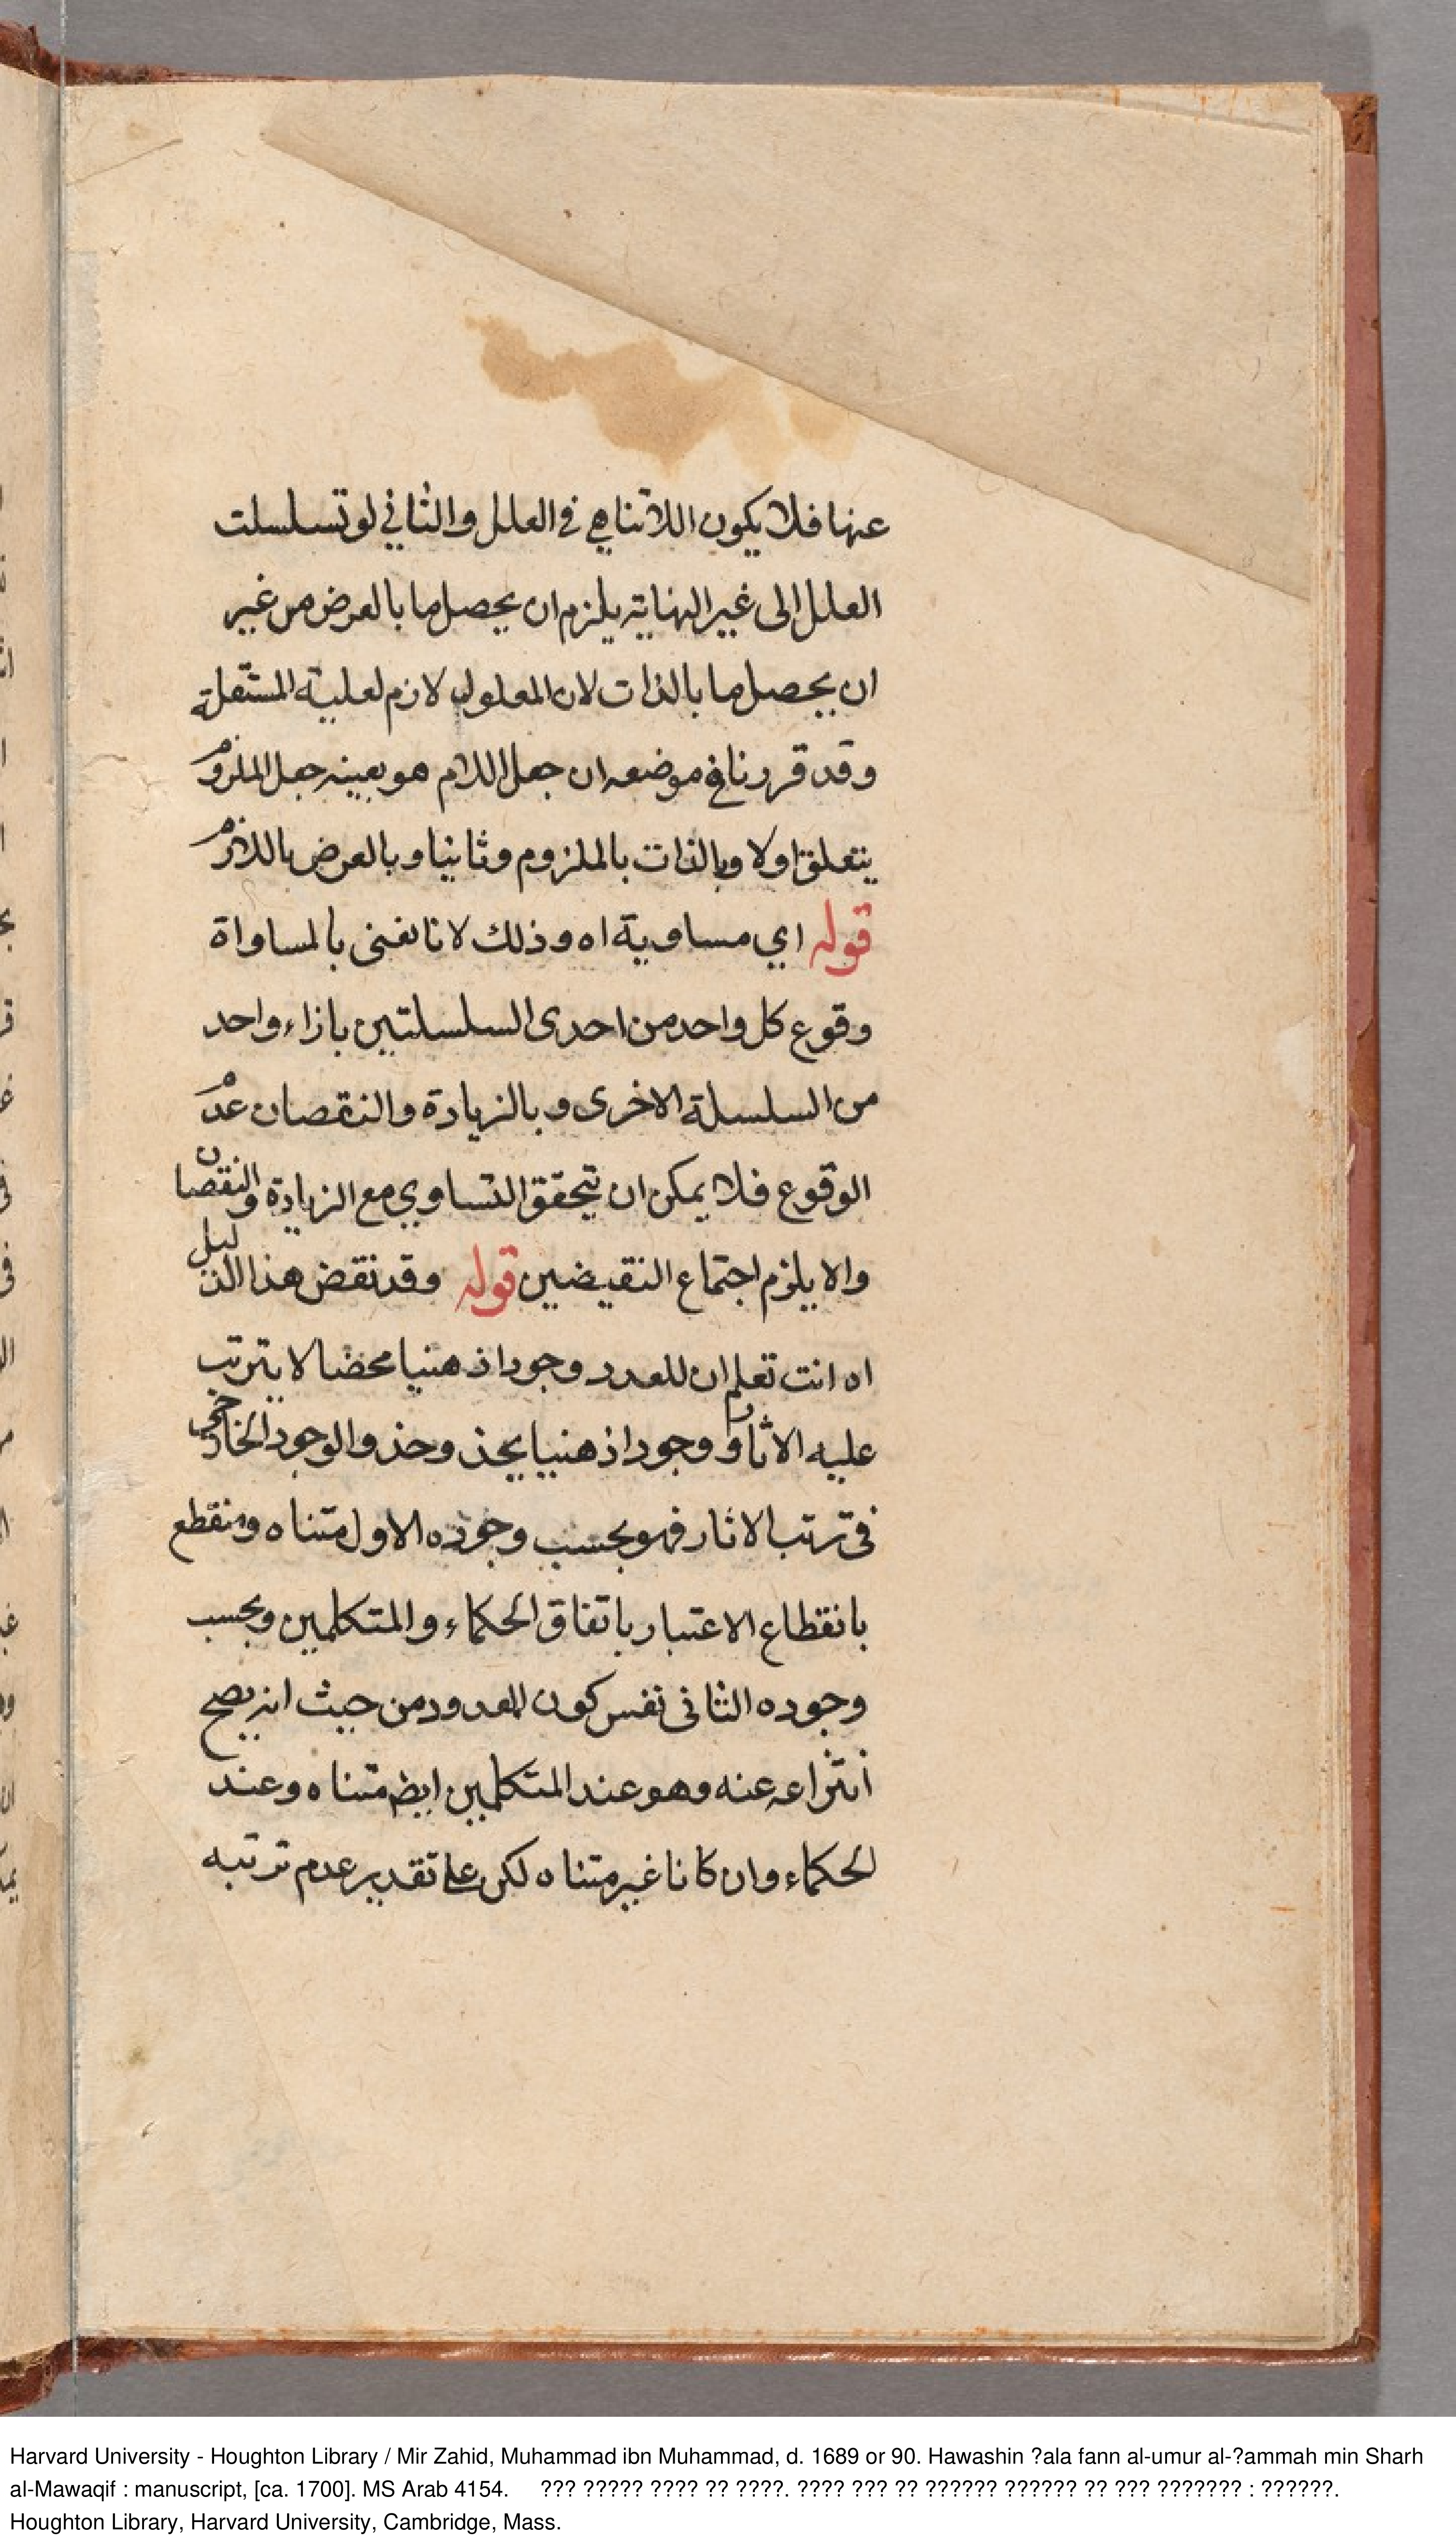 عنها فلا يكون اللاتناهي في العلل والثاني لو تسلسلت
العلل الى غير النهاية يلزم ان يحصل ما بالعرض من غير
ان يحصل ما بالذات لان المعلول لازم لعلية المستقلة
وقد قررنا في موضعه ان جعل اللازم هو بعينه جعل الملزوم
يتعلق اولا وبالذات بالملزوم وثانيا وبالعرض باللازم
قوله اي مساوية اه وذلك لانا نعنى بالمساواة
وقوع كل واحد من احدى السلسلتين بازاء واحد
من السلسلة الاخرى وبالزيادة والنقصان عدم
الوقوع فلا يمكن ان يتحقق التساوي مع الزيادة والنقصان
والا يلزم اجتماع النقيضين قوله وقد نقض هذا الدليل
اه انت تعلم ان للعدد وجودا ذهنيا محضا لا يترتب
عليه الاثار ووجودا ذهنيا يحذ وحذ والوجود الخارجي
فى ترتب الاثار فهو بحسب وجوده الاول متناه ومنقطع
بانقطاع الاعتبار باتفاق الحكماء والمتكلمين وبحسب
وجوده الثانى نفس كون المعدود من حيث انه يصح
انتزاعه عنه وهو عند المتكلمين ايضا متناه وعند
الحكماء وان كانا غير متناه لكن على تقدير عدم ترتبه
Harvard University - Houghton Library / Mir Zahid, Muhammad ibn Muhammad, d. 1689 or 90. Hawashin ?ala fann al-umur al-?ammah min Sharh
al-Mawaqif : manuscript, [ca. 1700]. MS Arab 4154. ??? ????? ???? ?? ????. ???? ??? ?? ?????? ?????? ?? ??? ??????? : ??????.
Houghton Library, Harvard University, Cambridge, Mass.